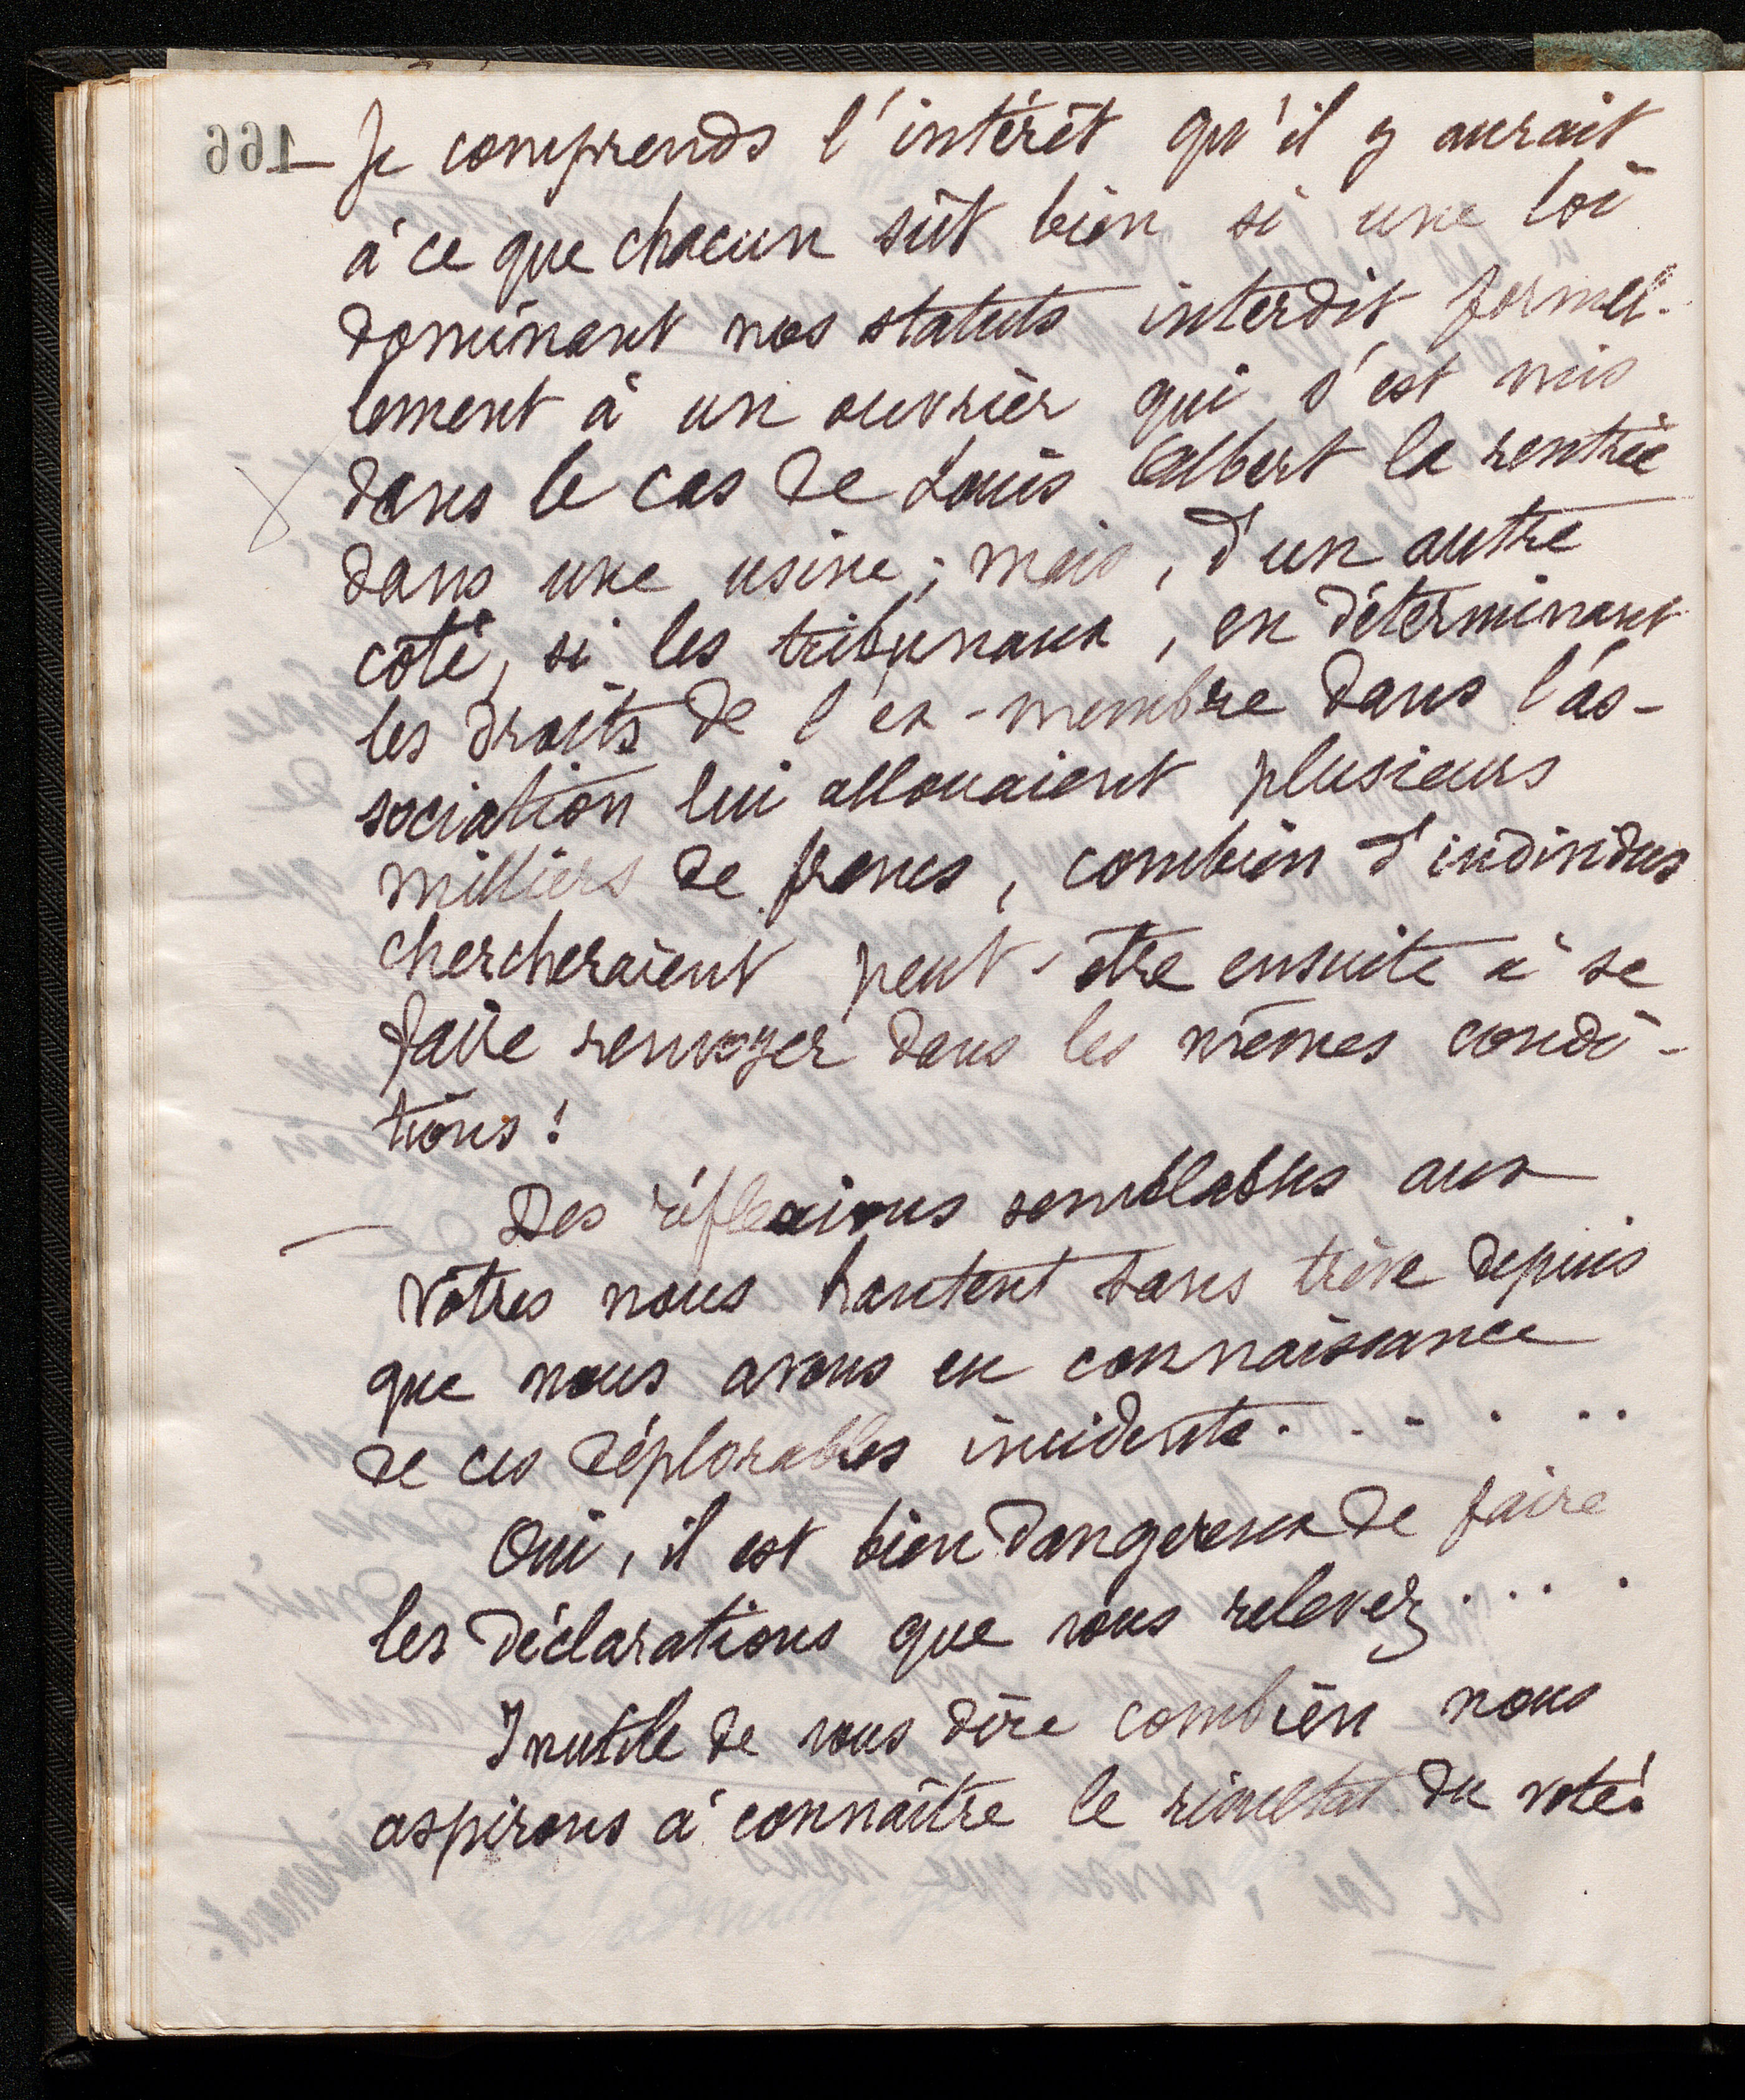 — Je comprends l'intérêt qu'il y aurait
à ce que chacun sût bien si une loi
dominant nos statuts interdit formel-
lement à un ouvrier qui s'est mis
dans le cas de Louis Albert la rentrée
dans une usine ; mais, d'un autre
côté, si les tribunaux, en déterminant
les droits de l'ex-membre dans l'as-
sociation lui allouaient plusieurs
milliers de francs, combien d'individus
chercheraient peut-être ensuite à se
faire renvoyer dans les mêmes condi-
tions !
— Des réflexions semblables aux
vôtres nous hantent sans trêve depuis
que nous avons eu connaissance
de ces déplorables incidents . . . . . .
Oui, il est bien dangereux de faire
les déclarations que vous relevez . . . .
Inutile de vous dire combien nous
aspirons à connaître le résultat du vote!
166